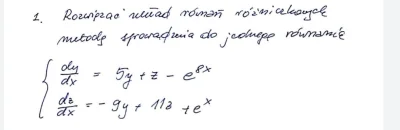 1. Rozwiązać układ równań różniczkowych
metodą sprowadzenia do jednego równania
dy/dx = 5y + z - e^{8x}
dz/dx = - 9y + 11z + e^x